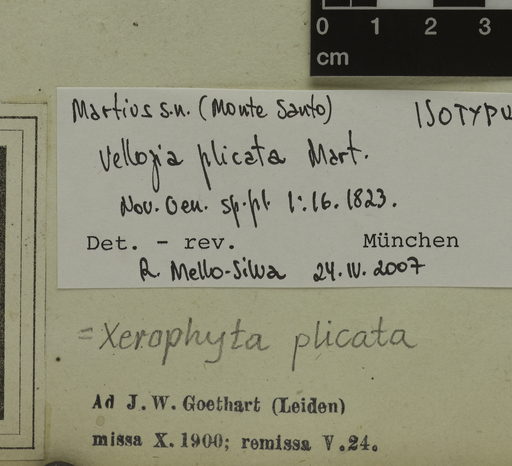 0 1 2 3
cm
Martius s.n. (Monte Santo) ISOTYPU
Vellozia plicata Mart.
Nov. Gen. sp. pl. 1:16. 1823.
Det. - rev. München
R. Mello-Silva 24.IV.2007
=Xerophyta plicata
Ad J. W. Goethart (Leiden)
missa X. 1900; remissa V.24.